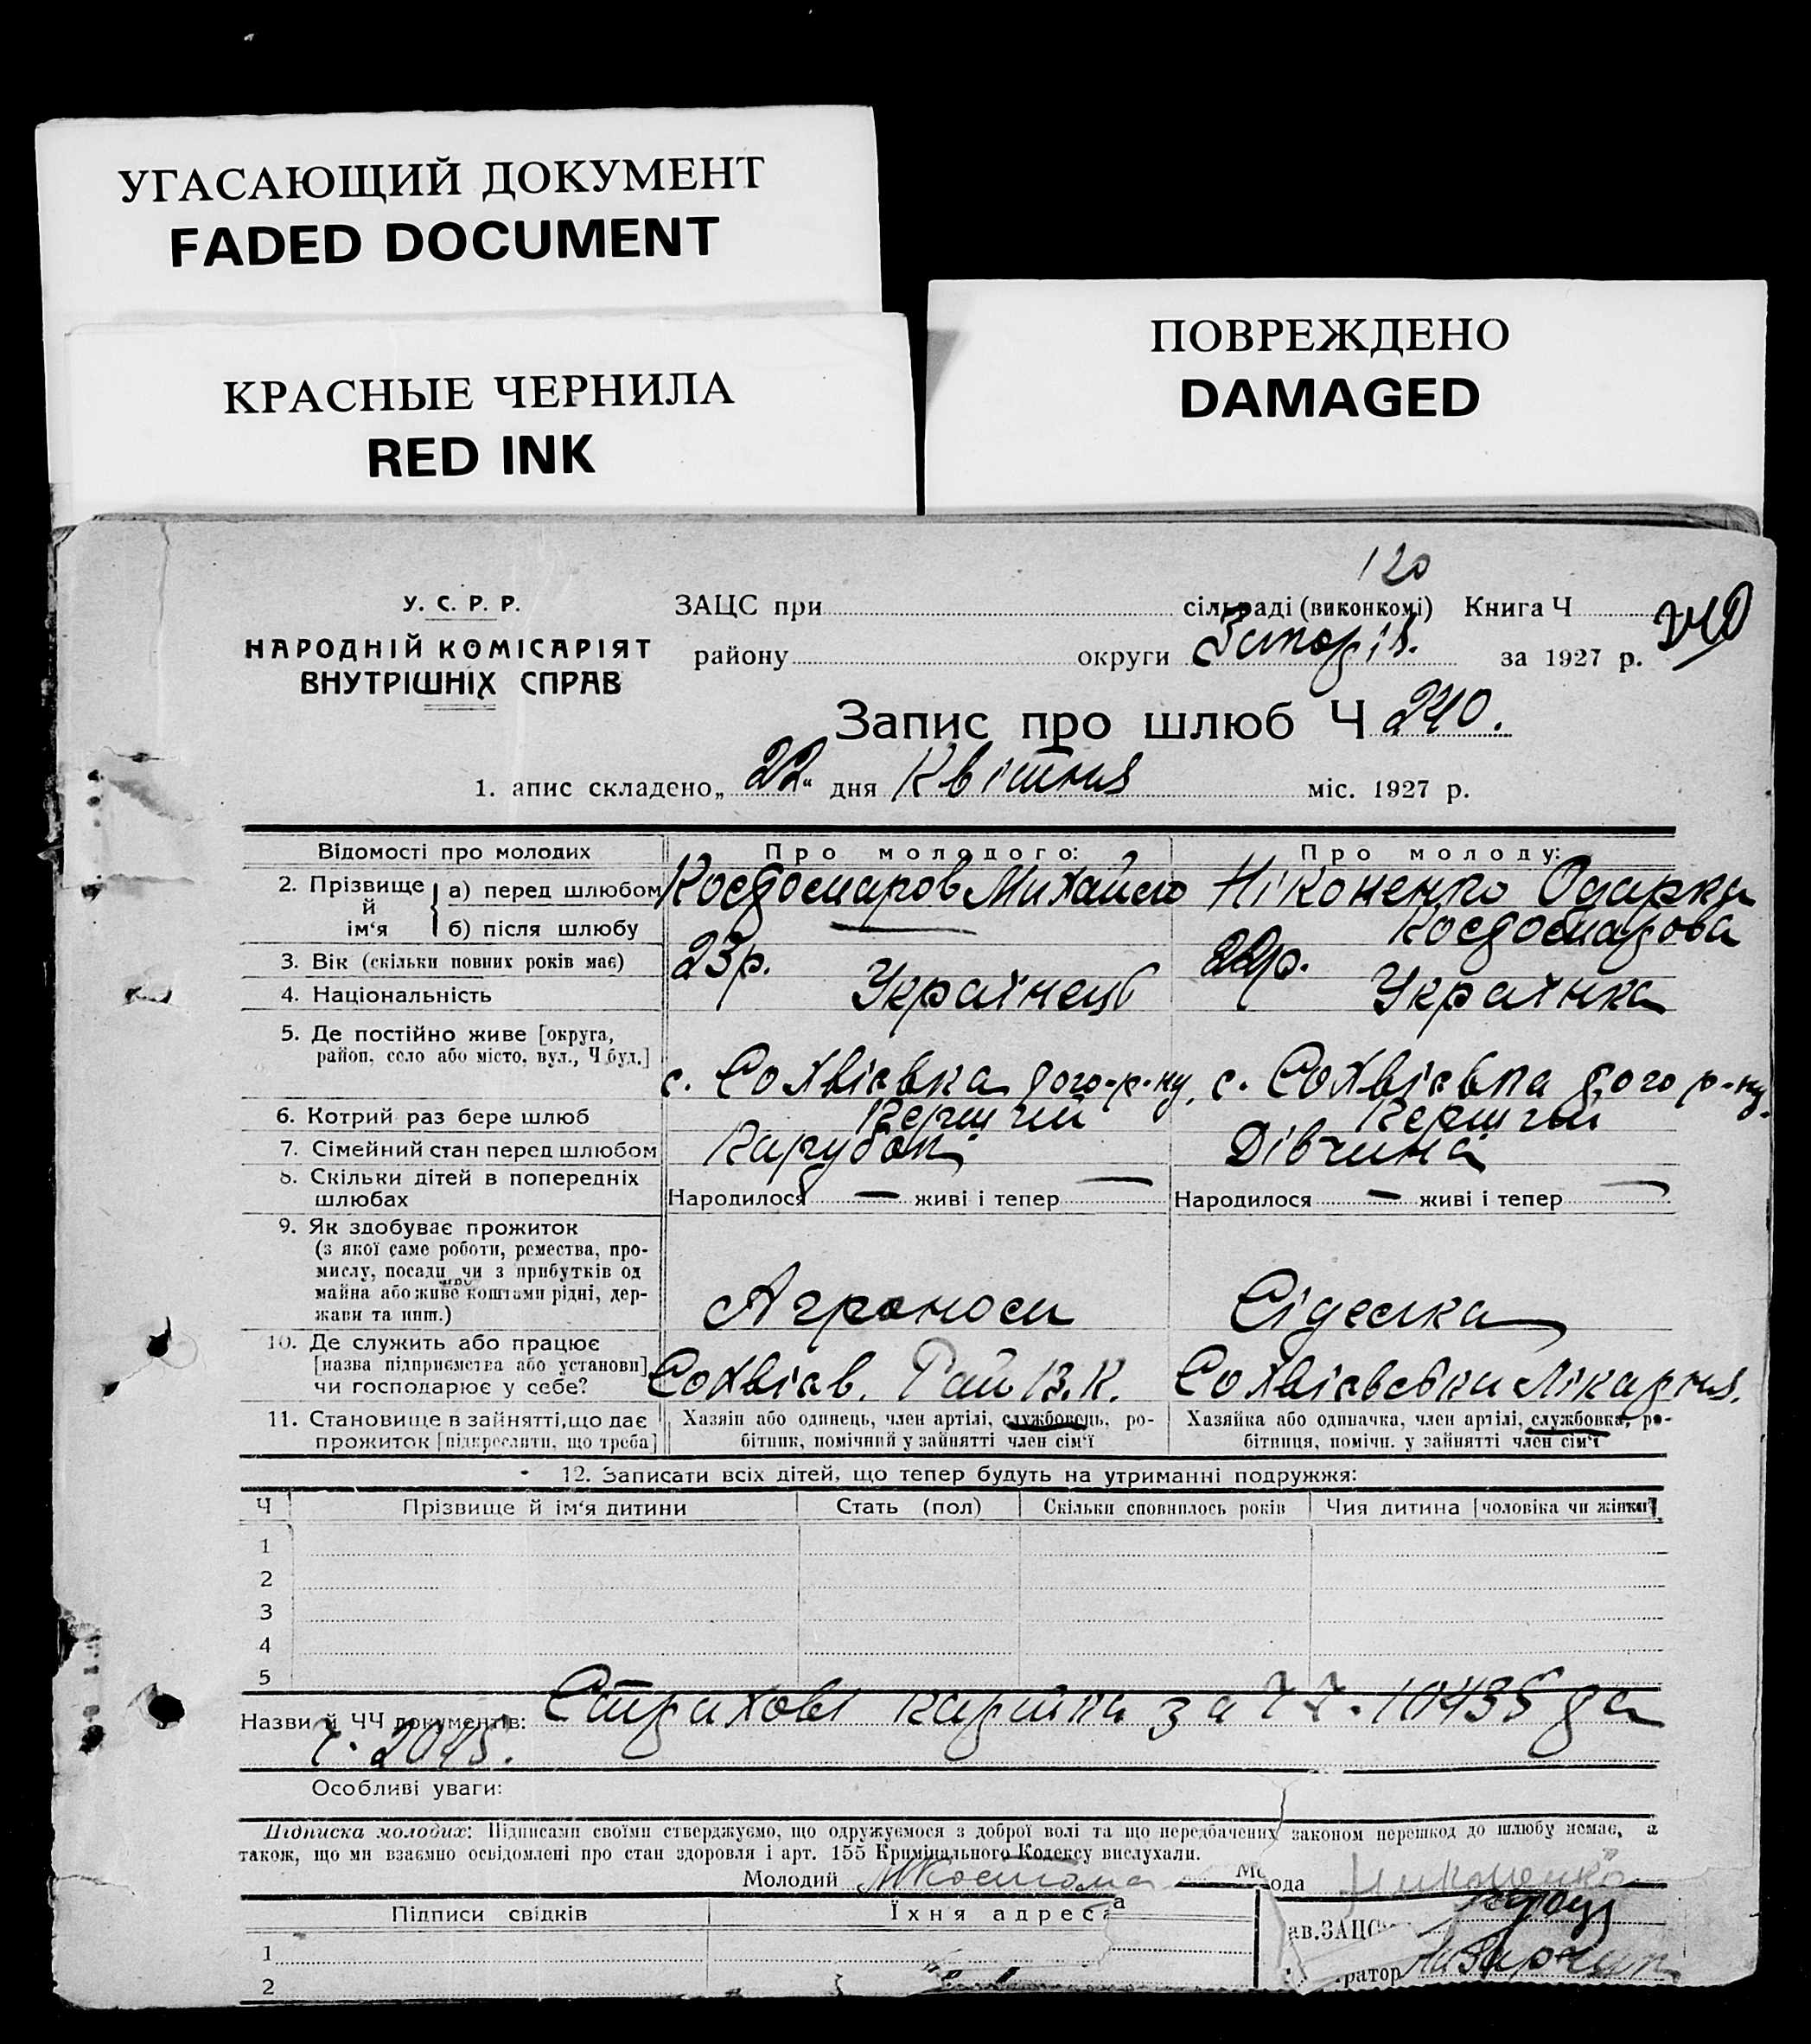 УГАСАЮЩИЙ ДОКУМЕНТ
FADED DOCUMENT
КРАСНЫЕ ЧЕРНИЛА
RED INK
ПОВРЕЖДЕНО
DAMAGED
120
У. С. Р. Р.
НАРОДНІЙ КОМІСАРІЯТ
ВНУТРІШНІХ СПРАВ
ЗАЦС при сільраді (виконкомі) Книга Ч
240
району округи Запоріз. за 1927 р.
Запис про шлюб Ч 240.
1. апис складено „22“ дня Квітня міс. 1927 р.
Відомості про молодих
Про молодого:
Про молоду:
2. Прізвище й ім‘я
а) перед шлюбом
Михайло
Ніконенко Одарка
б) після шлюбу
3. Вік (скільки повних років має)
23 р.
22 р.
4. Національність
Українець
Українка
5. Де постійно живе [округа,
район, село або місто, вул., Ч буд.]
с. Софієвка того-р-ну,
с. Софієвка того р-ну.
6. Котрий раз бере шлюб
Перший
Перший
7. Сімейний стан перед шлюбом
Парубок
Дівчина
8. Скільки дітей в попередніх
шлюбах
Народилося — живі і тепер —
Народилося — живі і тепер —
9. Як здобуває прожиток
(з якої саме роботи, ремества, про-
мислу, посади чи з прибутків од
майна або живе коштами рідні, дер-
жави та инш.)
Агроном
Сіделка
10. Де служить або працює
[назва підприємства або установи]
чи господарює у себе?
Рай В.К.
Лікарня.
11. Становище в зайнятті, що дає
прожиток [підкреслити, що треба]
Хазяїн або одинець, член артілі, службовець, ро-
бітник, помічний у зайнятті член сім‘ї
Хазяйка або одиначка, член артілі, службовка, ро-
бітниця, помічн. у зайнятті член сім‘ї
12. Записати всіх дітей, що тепер будуть на утриманні подружжя:
Ч
Прізвище й ім‘я дитини
Стать (пол)
Скільки сповнилось років
Чия дитина [чоловіка чи жінки]
1
2
3
4
5
Назви й ЧЧ документів: Страхові картки за ЧЧ. 10435 да
Ч. 2045.
Особливі уваги:
Підписка молодих: Підписами своїми стверджуємо, що одружуємося з доброї волі та що передбачених законом перешкод до шлюбу немає, а
також, що ми взаємно освідомлені про стан здоровля і арт. 155 Кримінального Кодексу вислухали.
Молодий
ода
Підписи свідків
Їхня адреса
ав. ЗАЦС
1
ратор
2